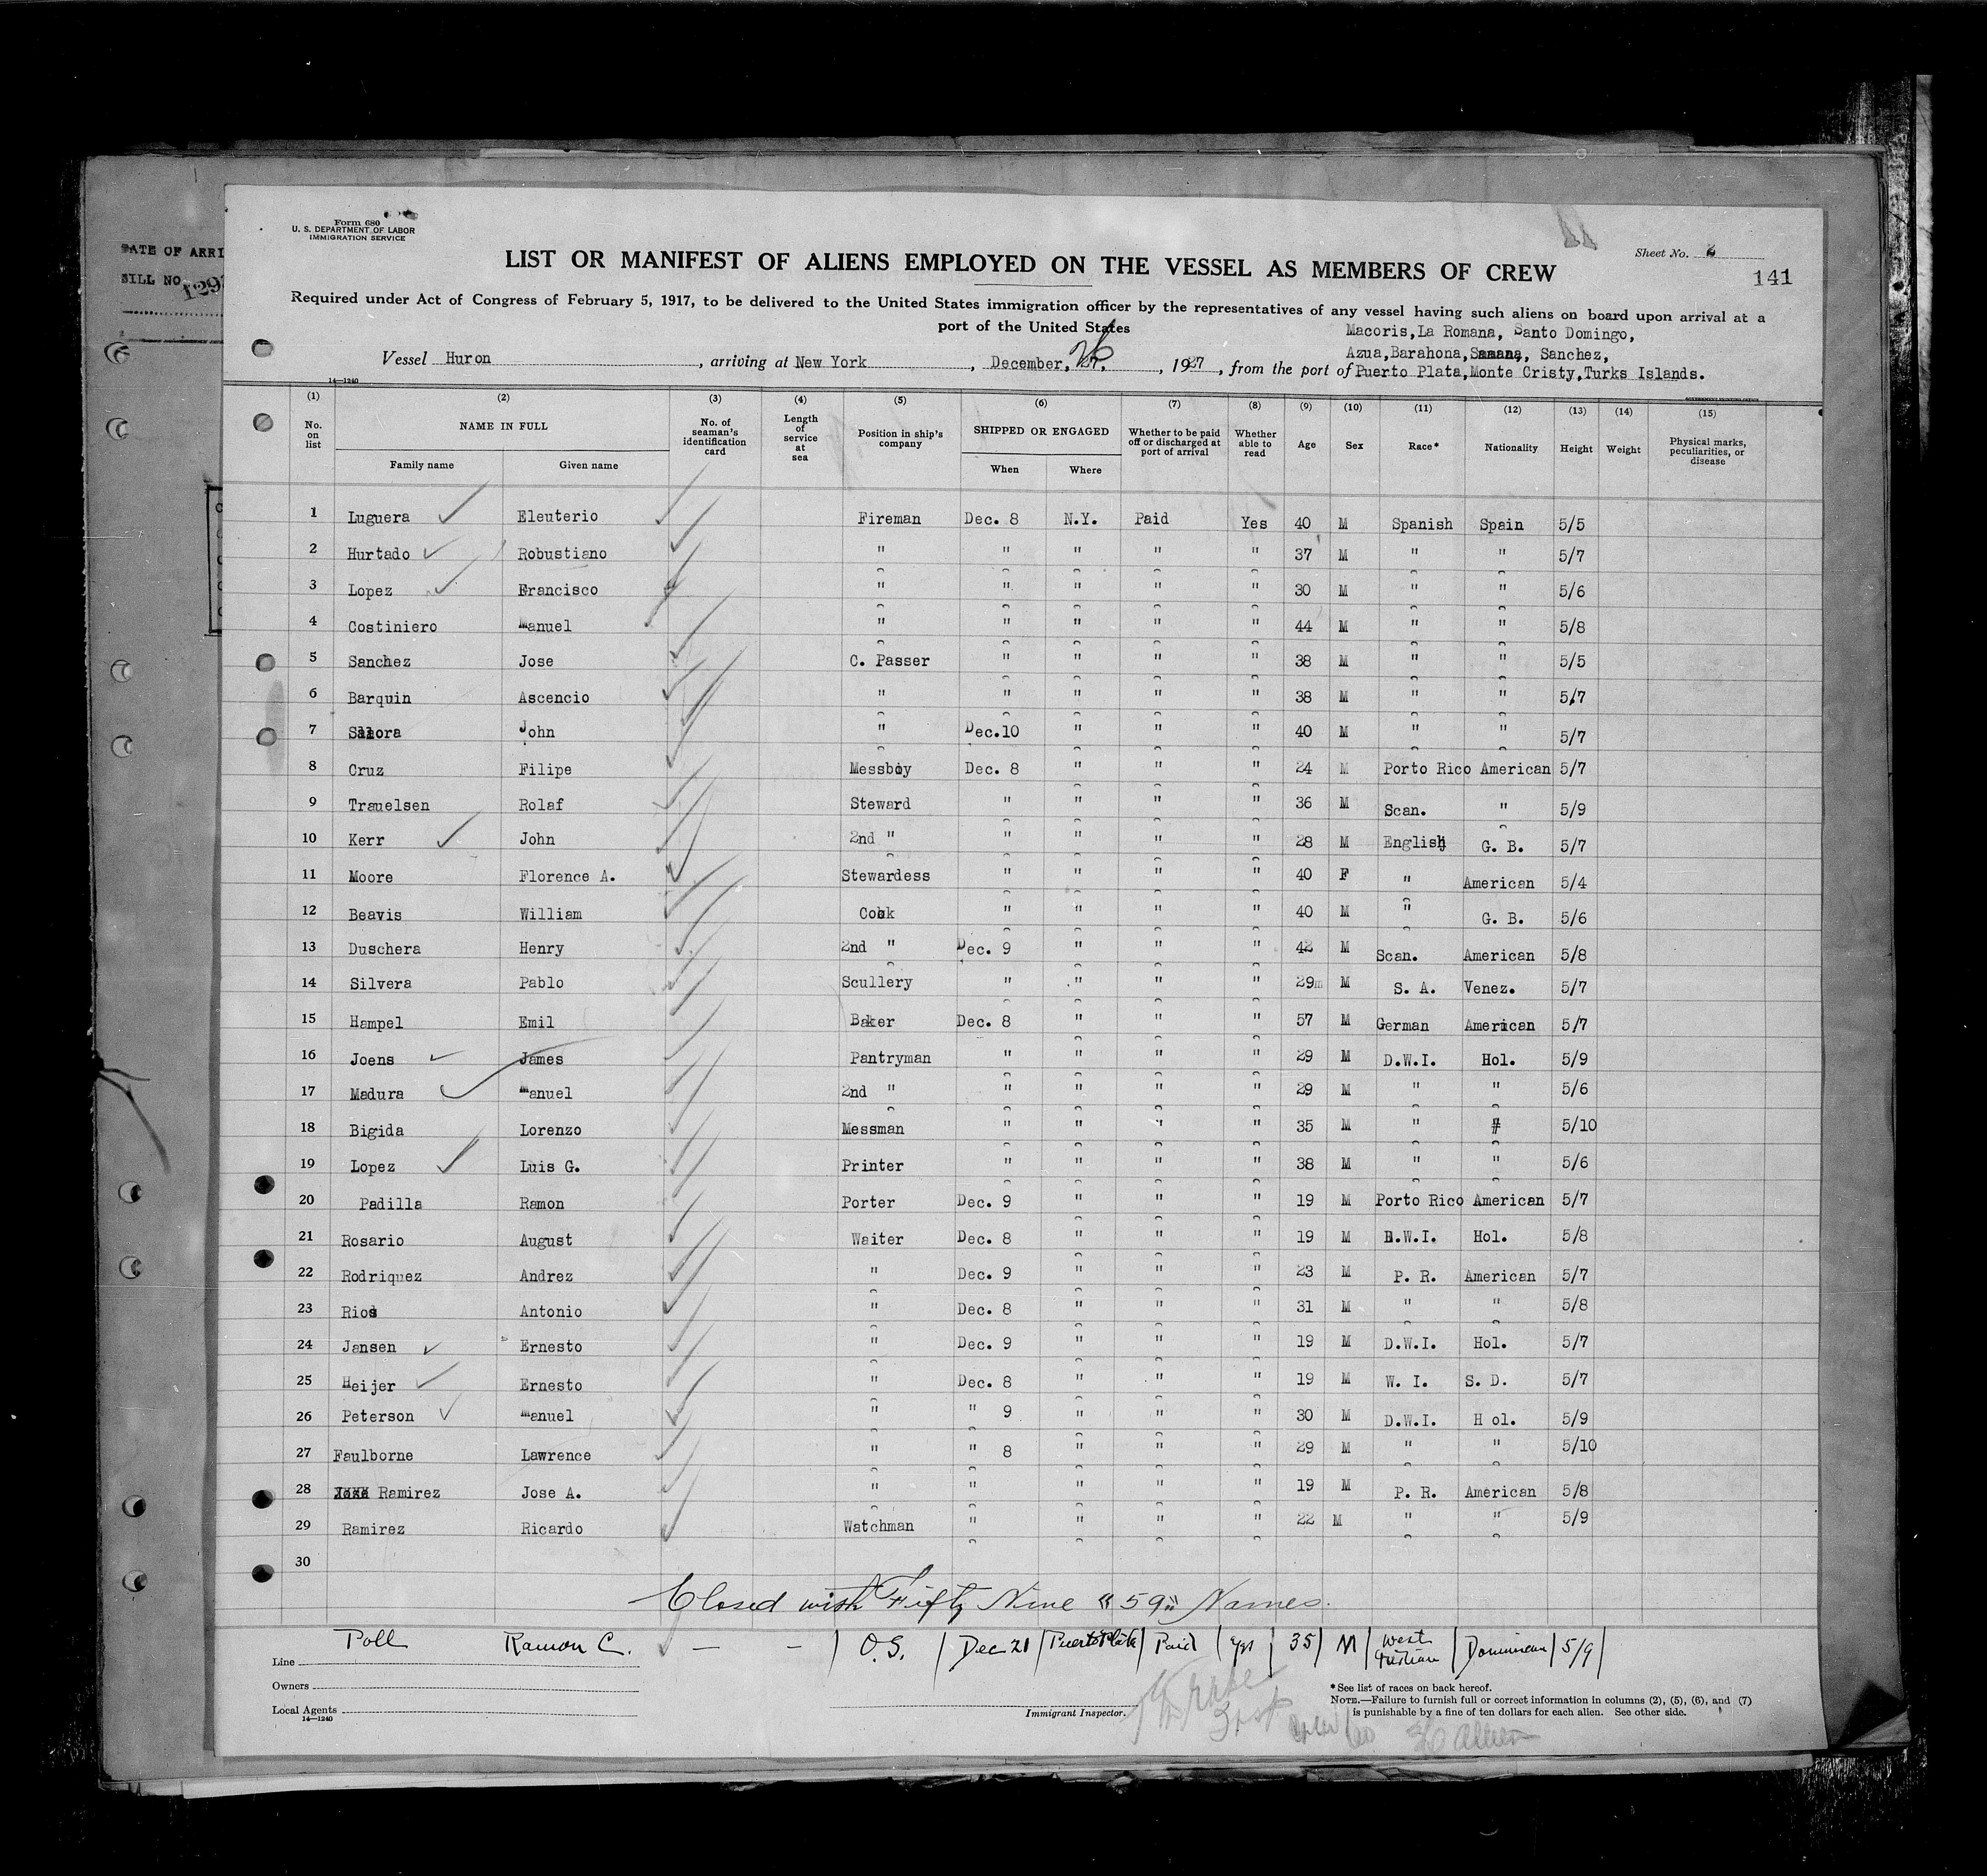 Form 680
U. S. DEPARTMENT OF LABOR
IMMIGRATION SERVICE
DATE OF ARRI
BILL NO.
LIST OR MANIFEST OF ALIENS EMPLOYED ON THE VESSEL AS MEMBERS OF CREW
Sheet No.
141
Required under Act of Congress of February 5, 1917, to be delivered to the United States immigration officer by the representatives of any vessel having such aliens on board upon arrival at a
port of the United States
Macoris,La Romana, Santo Domingo,
Azua,Barahona,Samana, Sanchez,
Vessel Huron, arriving at New York, December, 26, 1927, from the port of Puerto Plata,Monte Cristy,Turks Islands.
14—1240
(1) (2) (3) (4) (5) (6) (7) (8) (9) (10) (11) (12) (13) (14) (15)
No. on list NAME IN FULL No. of seaman's identification card Length of service at sea Position in ship's company SHIPPED OR ENGAGED Whether to be paid off or discharged at port of arrival Whether able to read Age Sex Race* Nationality Height Weight Physical marks, peculiarities, or disease
Family name Given name When Where
1 Luguera Eleuterio Fireman Dec. 8 N.Y. Paid Yes 40 M Spanish Spain 5/5
2 Hurtado Robustiano " " " " " 37 M " " 5/7
3 Lopez Francisco " " " " " 30 M " " 5/6
4 Costiniero Manuel " " " " " 44 M " " 5/8
5 Sanchez Jose C. Passer " " " " 38 M " " 5/5
6 Barquin Ascencio " " " " " 38 M " " 5/7
7 John " Dec.10 " " " 40 M " " 5/7
8 Cruz Filipe Messboy Dec. 8 " " " 24 M Porto Rico American 5/7
9 Trauelsen Rolaf Steward " " " " 36 M Scan. " 5/9
10 Kerr John 2nd " " " " " 28 M English G. B. 5/7
11 Moore Florence A. Stewardess " " " " 40 F " American 5/4
12 Beavis William Cook " " " " 40 M " G. B. 5/6
13 Duschera Henry 2nd " Dec. 9 " " " 42 M Scan. American 5/8
14 Silvera Pablo Scullery " " " " 29 M S. A. Venez. 5/7
15 Hampel Emil Baker Dec. 8 " " " 57 M German American 5/7
16 Joens James Pantryman " " " " 29 M D.W.I. Hol. 5/9
17 Madura Manuel 2nd " " " " " 29 M " " 5/6
18 Bigida Lorenzo Messman " " " " 35 M " " 5/10
19 Lopez Luis G. Printer " " " " 38 M " " 5/6
20 Padilla Ramon Porter Dec. 9 " " " 19 M Porto Rico American 5/7
21 Rosario August Waiter Dec. 8 " " " 19 M D.W.I. Hol. 5/8
22 Rodriquez Andrez " Dec. 9 " " " 23 M P. R. American 5/7
23 Rios Antonio " Dec. 8 " " " 31 M " " 5/8
24 Jansen Ernesto " Dec. 9 " " " 19 M D.W.I. Hol. 5/7
25 Heijer Ernesto " Dec. 8 " " " 19 M W. I. S. D. 5/7
26 Peterson Manuel " " 9 " " " 30 M D.W.I. Hol. 5/9
27 Faulborne Lawrence " " 8 " " " 29 M " " 5/10
28 Ramirez Jose A. " " " " " 19 M P. R. American 5/8
29 Ramirez Ricardo Watchman " " " " 22 M " " 5/9
30
Closed with Fifty Nine "59" Names.
Poll Ramon C. — — O.S. Dec 21 Puerto Plata Paid yes 35 M West Indian Dominican 5/9
Line
Owners
Local Agents
14—1240
Immigrant Inspector.
*See list of races on back hereof.
NOTE.—Failure to furnish full or correct information in columns (2), (5), (6), and (7)
is punishable by a fine of ten dollars for each alien. See other side.